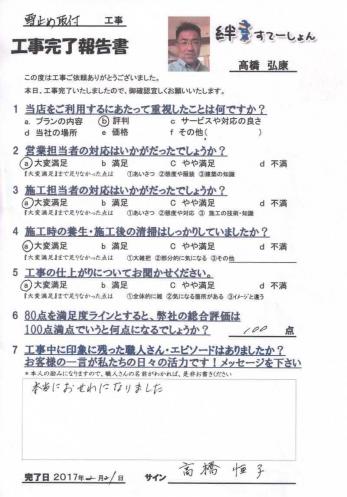 雪止め取付 工事
工事完了報告書
絆 すてーしょん
高橋 弘康
この度は工事ご依頼ありがとうございました。
本日、工事完了いたしましたので、御確認宜しくお願いいたします。
1 当店をご利用するにあたって重視したことは何ですか?
a. プランの内容 ⓑ 評判 c サービスや対応の良さ
d 当社の場所 e 価格 f その他( )
2 営業担当者の対応はいかがだったでしょうか?
ⓐ 大変満足 b 満足 C やや満足 d 不満
『大変満足』まで足りなかった点は ①あいさつ ②態度や服装 ③建築の知識
3 施工担当者の対応はいかがだったでしょうか?
ⓐ 大変満足 b 満足 C やや満足 d 不満
『大変満足』まで足りなかった点は ①あいさつ ②態度や対応 ③ 施工の技術・知識
4 施工時の養生・施工後の清掃はしっかりしていましたか?
ⓐ 大変満足 b 満足 C やや満足 d 不満
『大変満足』まで足りなかった点は ①大雑把 ②部分的に気になる ③その他
5 工事の仕上がりについてお聞かせください。
ⓐ 大変満足 b 満足 C やや満足 d 不満
『大変満足』まで足りなかった点は ①全体的に雑 ②気になる箇所がある ③イメージと違う
6 80点を満足度ラインとすると、弊社の総合評価は
100点満点でいうと何点になるでしょうか? 100 点
7 工事中に印象に残った職人さん・エピソードはありましたか?
お客様の一言が私たちの日々の活力です!メッセージを下さい
*本人の励みになりますので、職人さんの名前がわかれば、是非お書きください
本当におせわになりました
完了日 2017年2月21日 サイン 高橋 恒子